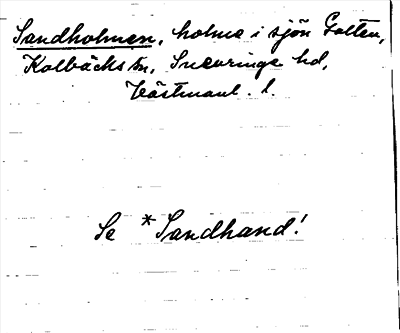 Sandholmen, holme i sjön Gotten,
Kolbäcks sn, Snevringe hd,
Västmanl. l.
Se *Sandhand!